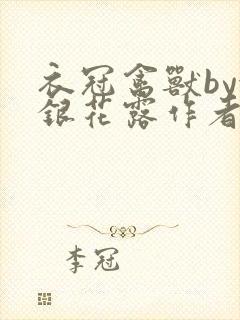 衣冠禽獸by
銀花露作者
李冠